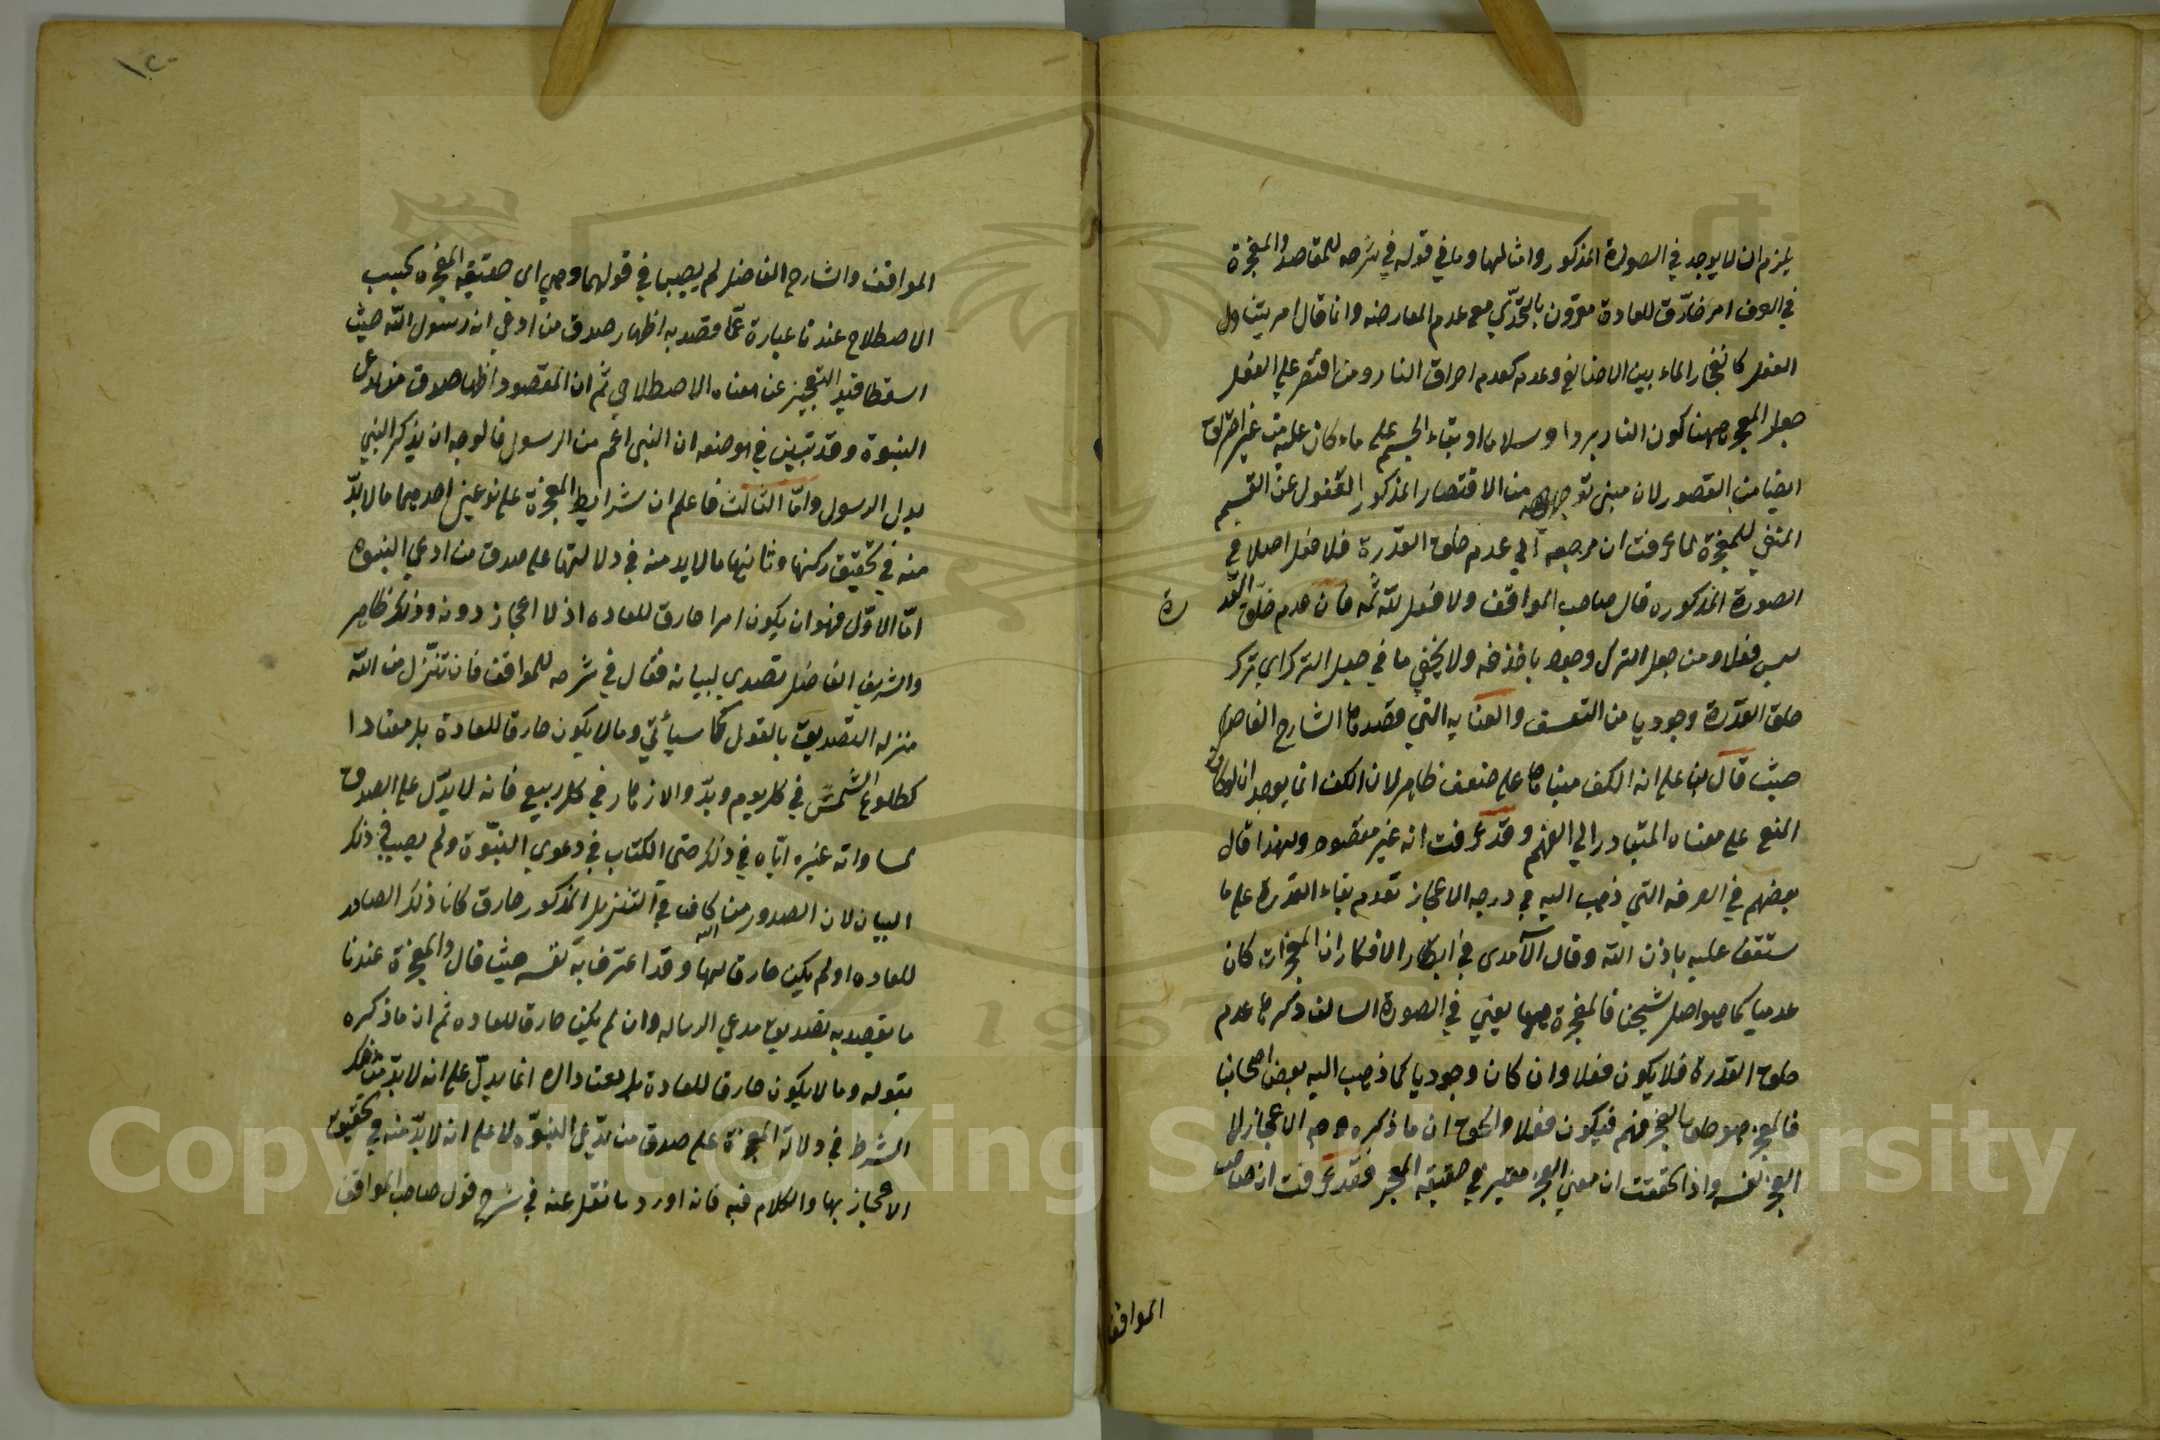 يلزم ان لا يوجد في الصورة المذكور وامثالها وما في قوله في شرحه للمقاصد والمعجزة
في العرف امر خارق للعادة مقرون بالتحدّي مع عدم المعارضه وانما قال امر ليتناول
الفعل كانفجار الماء بين الاصابع وعدمه كعدم احراق النار ومن اقتصر علي الفعل
جعل المعجز ههنا كون النار بردا وسلاما او بقاء الجسم على ماء كان عليه من غير احتراق
ايضا من القصور لان مبنى من الاقتصار المذكور الغفول عن القسم
المنفي للمعجزة لما عرفت ان مرجعه الي عدم خلق القدرة فلا فعل اصلا في
الصورة المذكوره قال صاحب المواقف ولا فعل لله ثمه فان عدم خلق القد
رة
ليس فعلا ومن جعل الترك وجوديا حذفه ولا يخفي ما في جعل الترك اي ترك
خلق القدرة وجوديا من التعسف والعنايه التي قصدها الشارح الفاضل
حيث قال بنا على انه الكف مبناها على ضعف ظاهر لان الكف انما يوجد ان لو كان
المنع على معناه المتبادر الي الفهم وقد عرفت انه غير مقصود ولهذا قال
بعضهم في الصرفه التي ذهب اليه في درجه الاعجاز تقدم بقاء القدرة على ما
ستقف عليه باذن الله وقال الآمدى في ابكار الافكار ان المعجزات كان
عدميا كما هو اصل شيخنا فالمعجزة ههنا يعني في الصورة السالف ذكرها عدم
خلق القدرة فلا يكون فعلا وان كان وجوديا كما ذهب اليه بعض اصحابنا
فالمعجز هو خلق العجز فيهم فيكون فعلا والحق ان ما ذكره وجه الاعجاز لا
العجز نفسه واذا تحققت ان معني العجز معتبر في حقيقه المعجز فقد عرفت ان صاحب
المواقف
١٢٠
المواقف والشارح الفاضل لم يصيبا في قولهما وهي اي حقيقه المعجزه بحسب
الاصطلاح عندنا عبارة عمّا قصد به اظهار صدق من ادعي انه رسول الله حيث
اسقطا قيد التعجيز عن معناه الاصطلاحي ثم ان المقصود اظهار صدق من ادعى
النبوة وقد تبين في موضعه ان النبى اعم من الرسول فالوجه ان يذكر النبي
بدل الرسول وامّا الثالث فاعلم ان شرايط المعجزة على نوعين احدهما ما لا بدّ
منه في تحقيق ركنها وثانيها ما لا بد منه في دلالتها على صدق من ادعي النبوه
امّا الاوّل فهو ان يكون امرا خارق للعاده اذ لا اعجاز دونه وذلك ظاهر
والشريف الفاضل تصدى لبيانه فقال في شرحه للمواقف فان تنزّل من الله
منزله التصديق بالقول كما سيأتي وما لا يكون خارقا للعادة بل معتادا
كطلوع الشمس في كل يوم وبدّو الازهار في كل ربيع فانه لا يدّل على الصدق
لمساواته غيره ايّاه في ذلك حتى الكتّاب في دعوي النبوّة ولم يصب في ذلك
البيان لان الصدور من الله كاف في التنزيل المذكور خارق كان ذلك الصادر
للعاده او لم يكن خارقا لها وقد اعترف به نفسه حيث قال والمعجزة عندنا
ما يقصد به تصديق مدعي الرساله وان لم يكن خارقا للعاده ثم ان ما ذكره
بقوله وما لا يكون خارقا للعادة بل معتادا اه انما يدلّ على انه لا بدّ من ذلك
الشرط في دلالة المعجزة على صدق من يدّعى النبوّه لا على انه لا بدّ منه في تحقيق
الاعجاز بها والكلام فيه فانه اورد ما نقل عنه في شرح قول صاحب المواقف
Copyright © King Saud University
1957